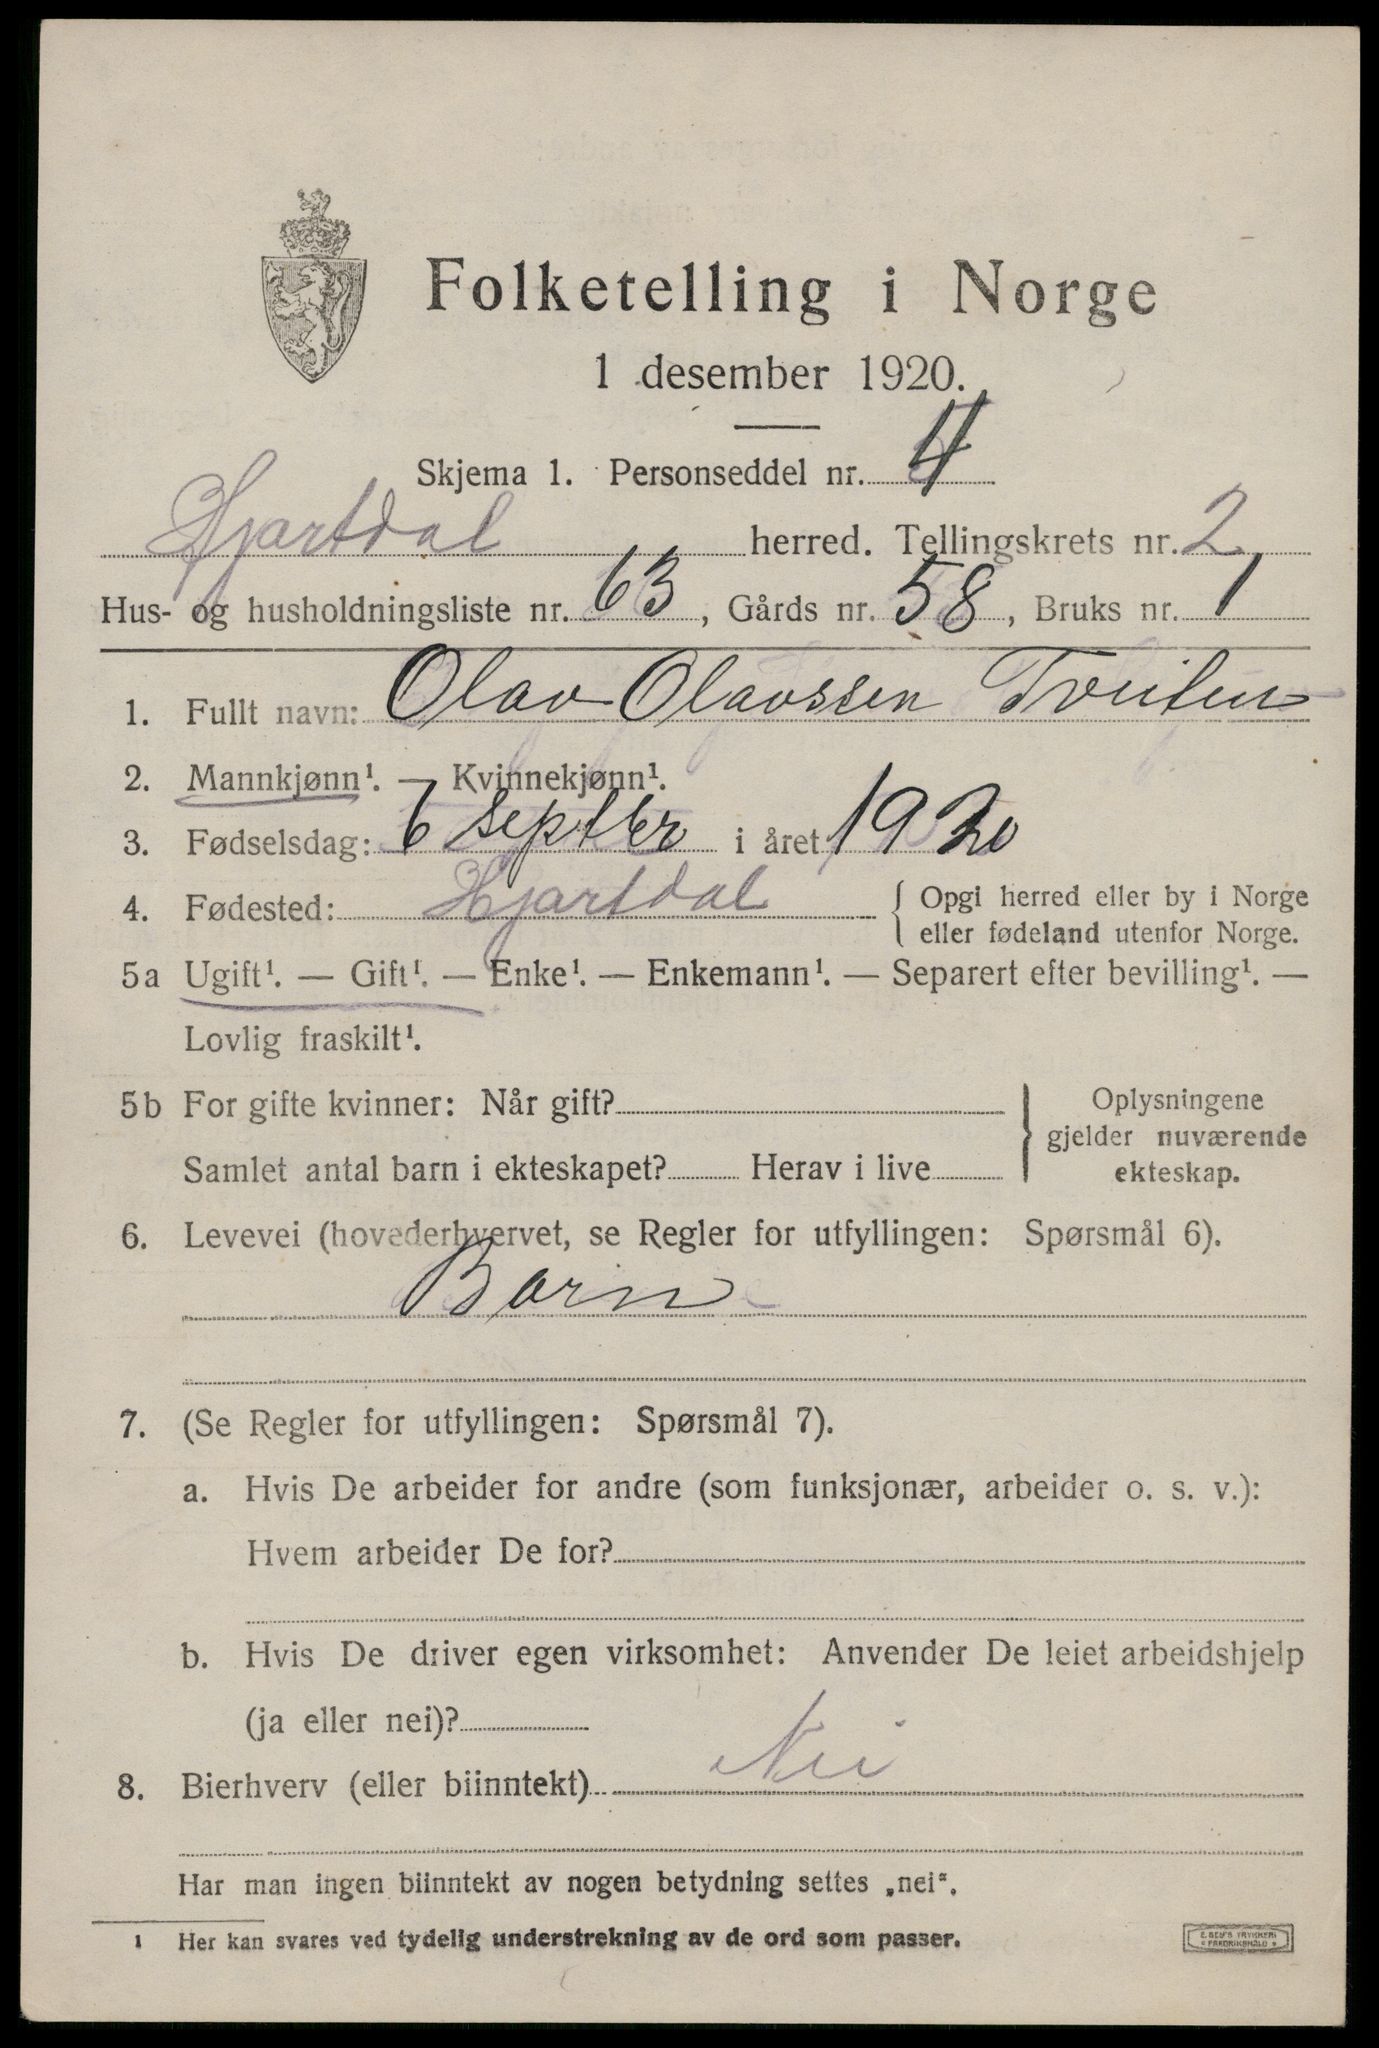 Folketelling i Norge
1 desember 1920.
Skjema 1. Personseddel nr. 4
Hjartdal herred. Tellingskrets nr. 2
Hus- og husholdningsliste nr. 63, Gårds nr. 58, Bruks nr. 1
1. Fullt navn: Olav Olavssen Tveiten
2. Mannkjønn¹. — Kvinnekjønn¹.
3. Fødselsdag: 6 septber i året 1920
4. Fødested: Hjartdal { Opgi herred eller by i Norge
eller fødeland utenfor Norge.
5a Ugift¹. — Gift¹. — Enke¹. — Enkemann¹. — Separert efter bevilling¹. —
Lovlig fraskilt¹.
5b For gifte kvinner: Når gift? } Oplysningene
gjelder nuværende
Samlet antal barn i ekteskapet? Herav i live ekteskap.
6. Levevei (hovederhvervet, se Regler for utfyllingen: Spørsmål 6).
Barn
7. (Se Regler for utfyllingen: Spørsmål 7).
a. Hvis De arbeider for andre (som funksjonær, arbeider o. s. v.):
Hvem arbeider De for?
b. Hvis De driver egen virksomhet: Anvender De leiet arbeidshjelp
(ja eller nei)?
8. Bierhverv (eller biinntekt) Nei
Har man ingen biinntekt av nogen betydning settes „nei“.
1 Her kan svares ved tydelig understrekning av de ord som passer.
E. SEM'S TRYKKERI
FREDRIKSHALD